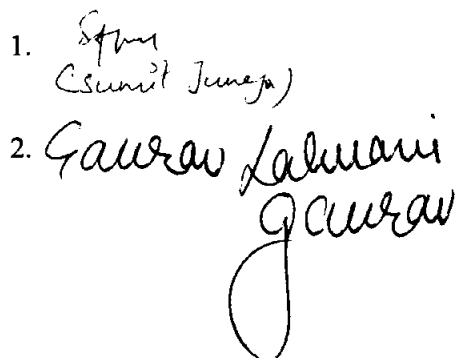 1.
(Sumit Juneja)
2. Gaurav Lalwani
Gaurav